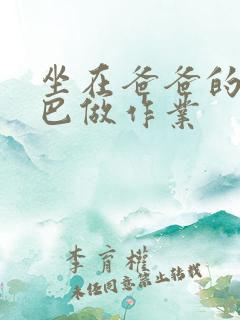 坐在爸爸的
巴做作业
李育權
未经同意禁止转载